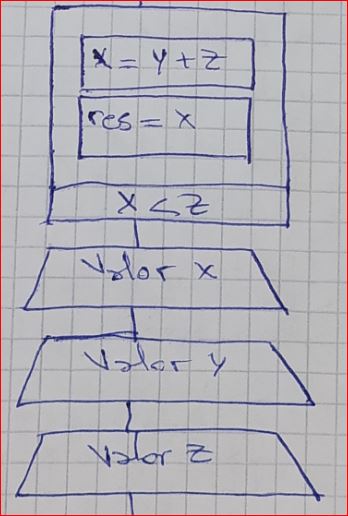 x = y + z
res = x
x < z
Valor x
Valor y
Valor z